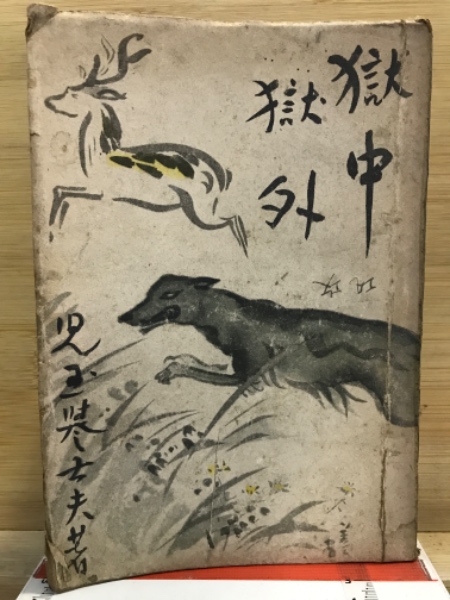 獄中
獄外
児玉誉士夫著